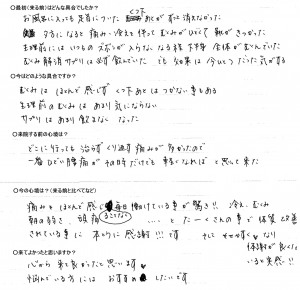 ○最初(来る前)はどんな具合でしたか?
お風呂に入っても足首についた くつ下 あとが ずっと消えなかった
夕方になると 痛み・冷えで むくみがひどく 靴がきつかった
生理前にはいつものズボンが入らない
むくみ解消サプリは必ず飲んでいた でも 効果は今ひとつだった気がする
○今はどのような具合ですか?
むくみは ほとんど感じず くつ下あとはつかない事もある
生理前の むくみは あまり気にならない
サプリは あまり飲まなくなった
○来院する前の心境は?
どこに行っても 治らずくり返す 痛みが 多かったので
一番ひどい腰痛がその時だけでも 軽くなればと思って来た
○今の心境は?(来る前と比べてなど)
痛みを ほとんど感じず 毎日 働けている事が驚き!! 冷え、むくみ
朝の弱さ、頭痛 … と たーくさんの事で 体質改善
されている事に 本当に感謝!!! です
体調が良く
いると実感!!
○来てよかったと思いますか?
心から 来て良かったと思います
悩んでいる方には おすすめしたいです